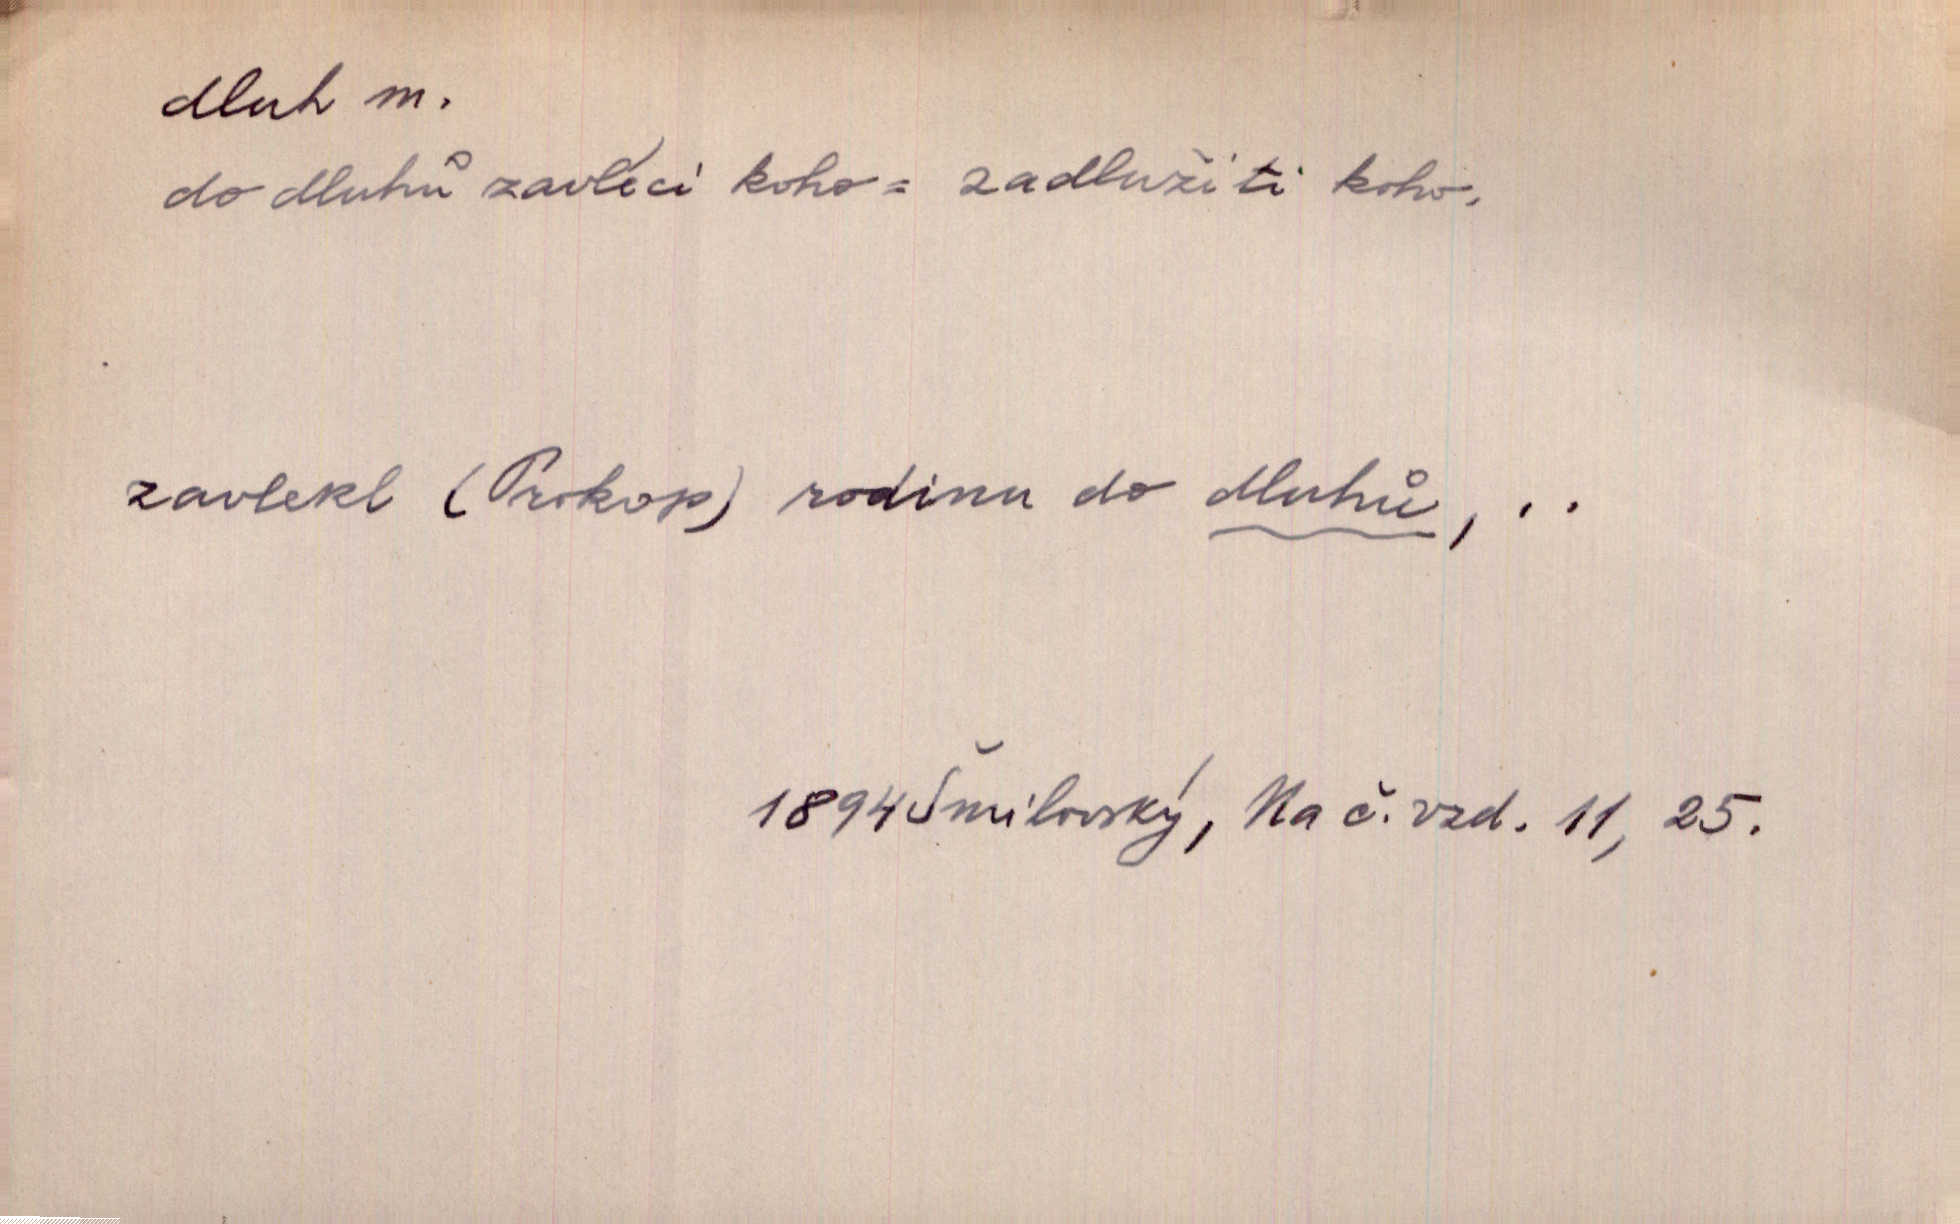 dluh m.
do dluhů zavléci koho = zadlužiti koho.
zavlekl (Prokop) rodinu do dluhů, ..
1894 Šmilovský, Na č. vzd. 11, 25.